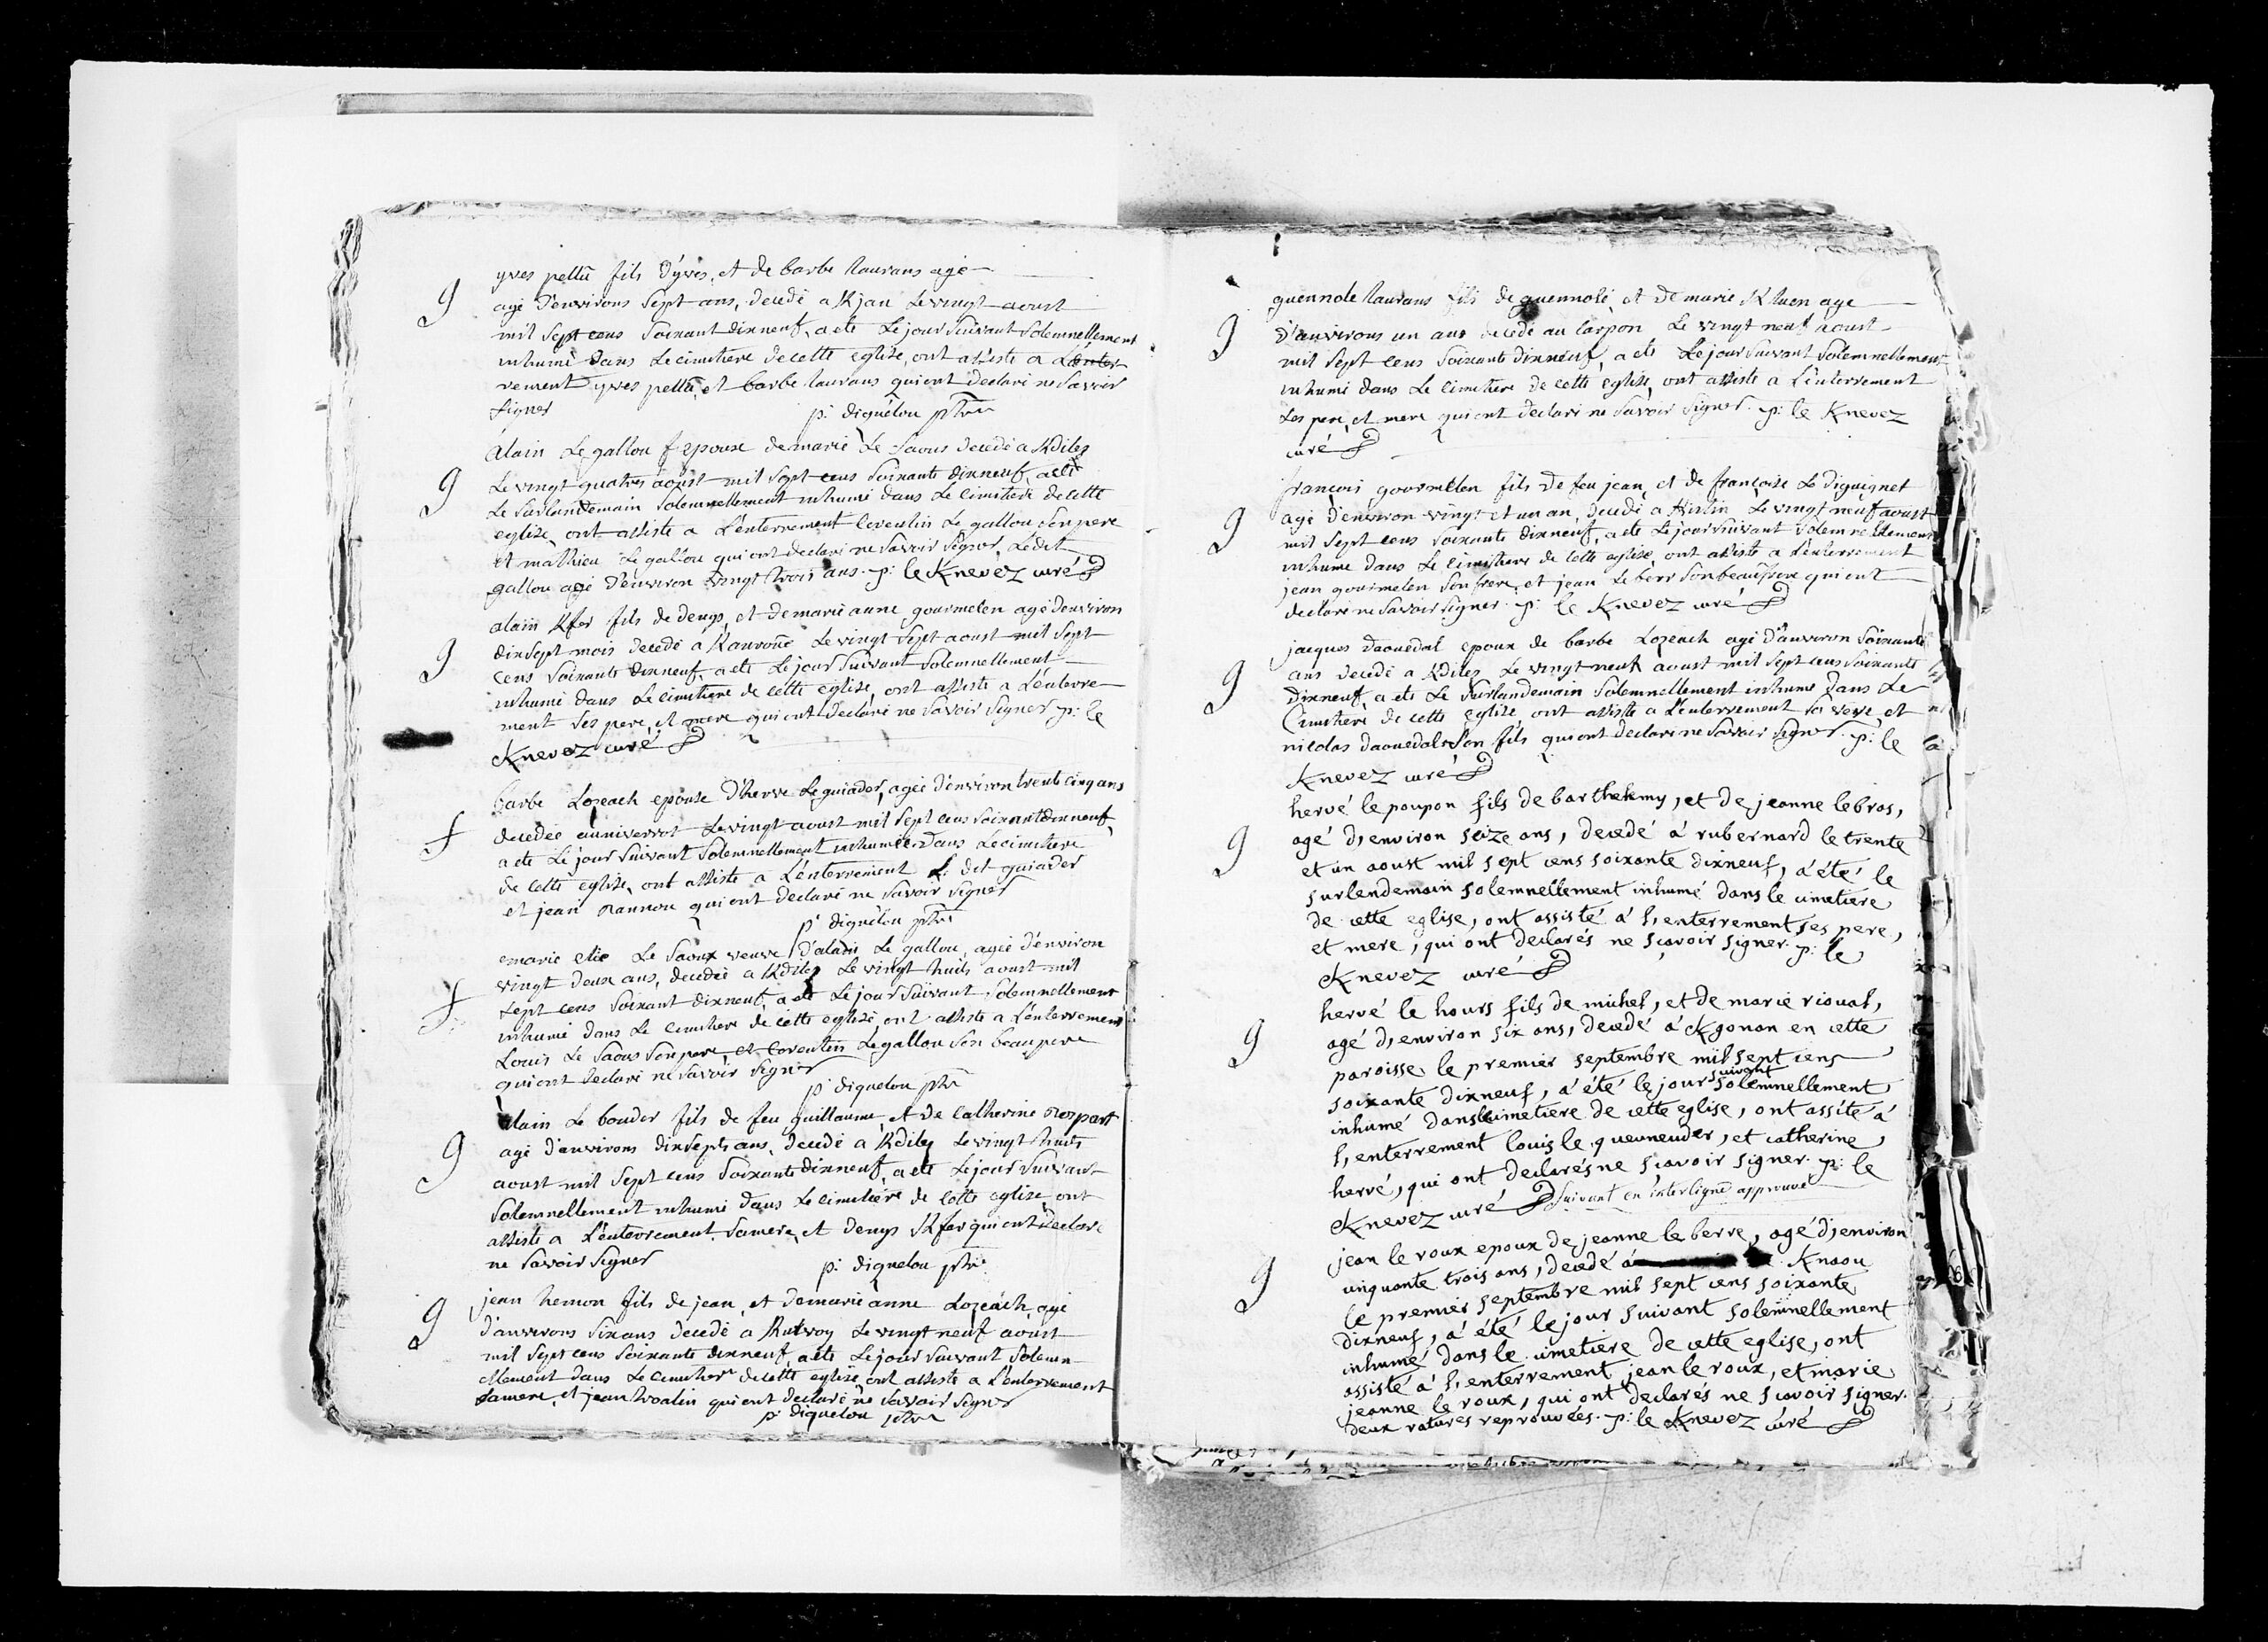 yves pellü fils d'yves, et de barbe laurans agé
g
agé d'environs sept ans, decedé a Kjan le vingt aoust
mil sept cens soixant dixneuf, a ete le jour suivant solemnellement
inhumé dans le cimitiere de cette eglise, ont assisté a l'enter
rement yves pellü, et barbe laurans qui ont declaré ne savoir
signer p: diquélou ptre
alain le gallou epoux de marie le saous decedé a Kdiles
g
le vingt quatre aoust mil sept cens soixante dixneuf, a ete
le surlandemain solemnellement inhumé dans le cimitiere de cette
eglise, ont assisté a l'enterrement Corentin le gallou son pere
et mathieu le gallou qui ont declaré ne savoir signer. ledit
gallou agé d'environ vingt trois ans. p: le Knevez curé
alain Kfer fils de denys, et de marie anne gourmelen agé d'environ
g
dixsept mois decedé a le vingt sept aoust mil sept
cens soixante dixneuf, a ete le jour suivant solemnellement
inhumé dans le cimitiere de cette eglise, ont assisté a l'enterre
ment ses pere, et mere qui ont declaré ne savoir signer p: le
Knevez curé
barbe Lozeach epouse d'herve le guiader, agée d'environ trente cinq ans
f
decedée auniverrot le vingt aoust mil sept cens soixant dixneuf
a ete le jour suivant solemnellement inhumée dans le cimitiere
de cette eglise, ont assisté a l'enterrement le dit guiader
et jean nannou qui ont declaré ne savoir signer
p: diquélou ptre
marie elie le saoux veuve d'alain le gallou, agée d'environ
f
vingt deux ans, decedée a Kdiles le vingt huits aoust mil
sept cens soixant dixneuf, a ete le jour suivant solemnellement
inhumé dans le cimitiere de cette eglise, ont assisté a l'enterrement
Louis le saous son pere, et Corentin le gallou son beaupere
qui ont declaré ne savoir signer
p: diquelou ptre
alain le bouder fils de feu guillaume, et de Catherine rospart
g
agé d'anvirons dixsepts ans, decedé a Kdiles le vingt huits
aoust mil sept cens soixante dixneuf, a ete le jour suivant
solemnellement inhumé dans le cimitiere de cette eglise, ont
assisté a l'enterrement sa mere, et denys Kfer qui ont declaré
ne savoir signer p: diquelou ptre
jean hemon fils de jean, et de marie anne Lozeach, agé
g
d'anvirons six ans decedé a le vingt neuf aoust
mil sept cens soixante dixneuf, a ete le jour suivant solemn
ellement dans le cimitiere de cette eglise, ont assisté a l'enterrement
sa mere, et jean troalin qui ont declaré ne savoir signer
p: diquelou ptre
guennole laurans fils de guennolé, et de marie Kluen age
g
d'anvirons un ans decedé au Carpon le vingt neuf aoust
mil sept cens soixante dixneuf, a ete le jour suivant solemnellement
inhumé dans le cimitiere de cette eglise, ont assisté a l'enterrement
ses pere, et mere qui ont declaré ne savoir signer. p: le Knevez
curé
francois gourmelen fils de feu jean, et de françoise le diguignet
g
agé d'environ vingt et un an, decedé a le vingt neuf aoust
mil sept cens soixante dixneuf, a ete le jour suivant solemnellement
inhumé dans le cimitiere de cette eglise, ont assisté a l'enterrement
jean gourmelen son frere, et jean le berr son beaufrere qui ont
declaré ne savoir signer. p: le Knevez curé
jacques daouedal epoux de barbe Lozeach agé d'anviron soixante
g
ans decedé a Kdiles le vingt neuf aoust mil sept cens soixante
dixneuf, a ete le surlandemain solemnellement inhumé dans le
Cimitiere de cette eglise, ont assisté a l'enterrement sa veve, et
nicolas daouedal son fils qui ont declaré ne savoir signer. p: le
Knevez curé
hervé le poupon fils de barthelemy, et de jeanne lebras,
g
agé d'environ seize ans, decedé à rubernard le trente
et un aoust mil sept cens soixante dixneuf, à été le
surlendemain solemnellement inhumé dans le cimetiere
de cette eglise, ont assisté à l'enterrement ses pere,
et mere, qui ont declarés ne sçavoir signer. p: le
Knevez curé
hervé le hours fils de michel, et de marie rioual,
g
agé d'environ six ans, decedé à Kgonan en cette
paroisse le premier septembre mil sept cens
soixante dixneuf, à été le jour suivant solemnellement
inhumé dans le cimetiere de cette eglise, ont assité à
l'enterrement louis le queuneuder, et catherine
hervé, qui ont declarés ne sçavoir signer. p: le
Knevez curé suivant en interligne approuvé
jean le roux epoux de jeanne le berre, agé d'environ
g
cinquante trois ans, decedé à Knaou
le premier septembre mil sept cens soixante
dixneuf, à été le jour suivant solemnellement
inhumé dans le cimetiere de cette eglise, ont
assisté à l'enterrement jean le roux, et marie
jeanne le roux, qui ont declarés ne sçavoir signer.
deux ratures reprouvées. p: le Knevez curé